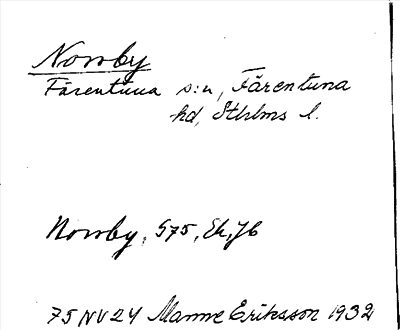 Norrby
Färentuna s:n, Färentuna
hd, Sthlms l.
Norrby, G75, Ek, JB
75 NV 24 Manne Eriksson 1932